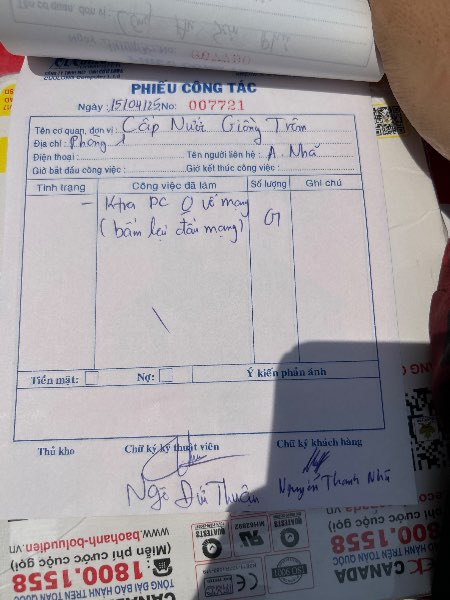 Tên cơ quan, đơn vị :
PHIẾU CÔNG TÁC
Ngày : 15/04/25 No: 007721
Tên cơ quan, đơn vị : Cấp Nước Giồng Trôm
Địa chỉ : Phòng 1
Điện thoại : Tên người liên hệ : A. Nhã
Giờ bắt đầu công việc : Giờ kết thúc công việc :
Tình trạng Công việc đã làm Số lượng Ghi chú
- Ktra PC 0 vô mạng 01
(bấm lại đầu mạng)
Tiền mặt: Nợ: Ý kiến phản ánh
Thủ kho Chữ ký kỹ thuật viên Chữ ký khách hàng
Ngô Đức Thuân Nguyễn Thanh Nhã
www.baohanh-boluudien.vn
(Miễn phí cước cuộc gọi)
1800.1558
TỔNG ĐÀI BẢO HÀNH TRÊN TOÀN QUỐC
QUATEST3
CE
CANADA
TRÊN TOÀN QUỐC
1800.1558